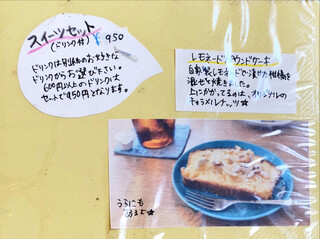 スイーツセット
(ドリンク付) ¥950
ドリンクは別紙のお好きな
ドリンクからお選び下さい。
600円以上のドリンクは
セットで950円となります。
レモネードパウンドケーキ
自家製レモネードで漬けた柑橘を
混ぜて焼きました。
上にかかってるのは、オリジナルの
キャラメルナッツ☆
うらにも
あるよ☆